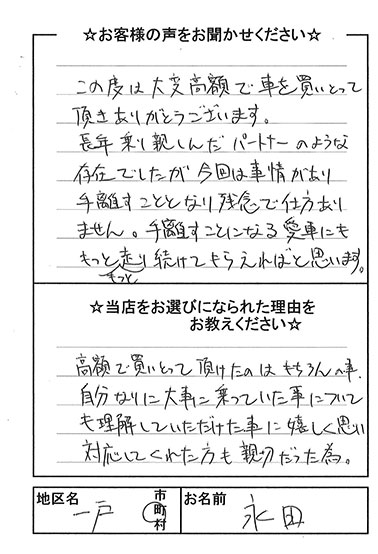 ☆お客様の声をお聞かせください☆
この度は大変高額で車を買いとって
頂きありがとうございます。
長年乗り親しんだパートナーのような
存在でしたが今回は事情があり
手離すこととなり残念で仕方あり
ません。手離すことになる愛車にも
もっと走り続けてもらえればと思います。
ずっと
☆当店をお選びになられた理由を
お教えください☆
高額で買いとって頂けたのはもちろんの事、
自分なりに大事に乗っていた事について
も理解していただけた事に嬉しく思い
対応してくれた方も親切だった為。
地区名 一戸 市町村
お名前 永田